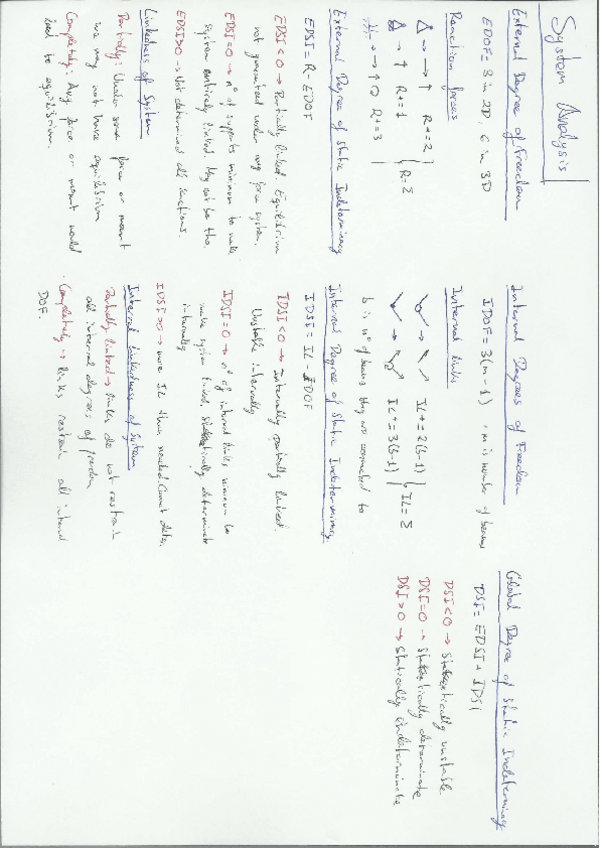 System Analysis
External Degree of Freedom
EDOF= 3 in 2D, 6 in 3D
Reaction forces
△ → → ↑ R+=2
△ → ↑ R+=1
→ → ↑ ↻ R+=3
R=Σ
External Degree of Static Indeterminacy
EDSI= R - EDOF
EDSI<0 → Partially linked. Equilibrium
not guaranteed under any force system.
EDSI=0 → nº of supports minimum to make
system entirely linked. May not be tho.
EDSI>0 → Not determined all reactions.
Linkedness of System
Partially: Under some force or moment
we may not have equilibrium
Completely: Any force or moment would
lead to equilibrium.
Internal Degrees of Freedom
IDOF= 3(m-1) , m is number of beams
Internal Links
IL+=2(b-1)
IL+=3(b-1)
IL=Σ
b is nº of beams they are connected to
Internal Degree of Static Indeterminacy
IDSI= IL - IDOF
IDSI<0 → Internally partially linked.
Unstable internally
IDSI=0 → nº of internal links minimum to
make system linked. Statically determinate
internally
IDSI>0 → more IL than needed. Cannot deter.
Internal Linkedness of System
Partially linked → links do not restrain
all internal degrees of freedom
Completely → links restrain all internal
DOF.
Global Degree of Static Indeterminacy
DSI= EDSI + IDSI
DSI<0 → Statically unstable
DSI=0 → Statically determinate
DSI>0 → Statically indeterminate